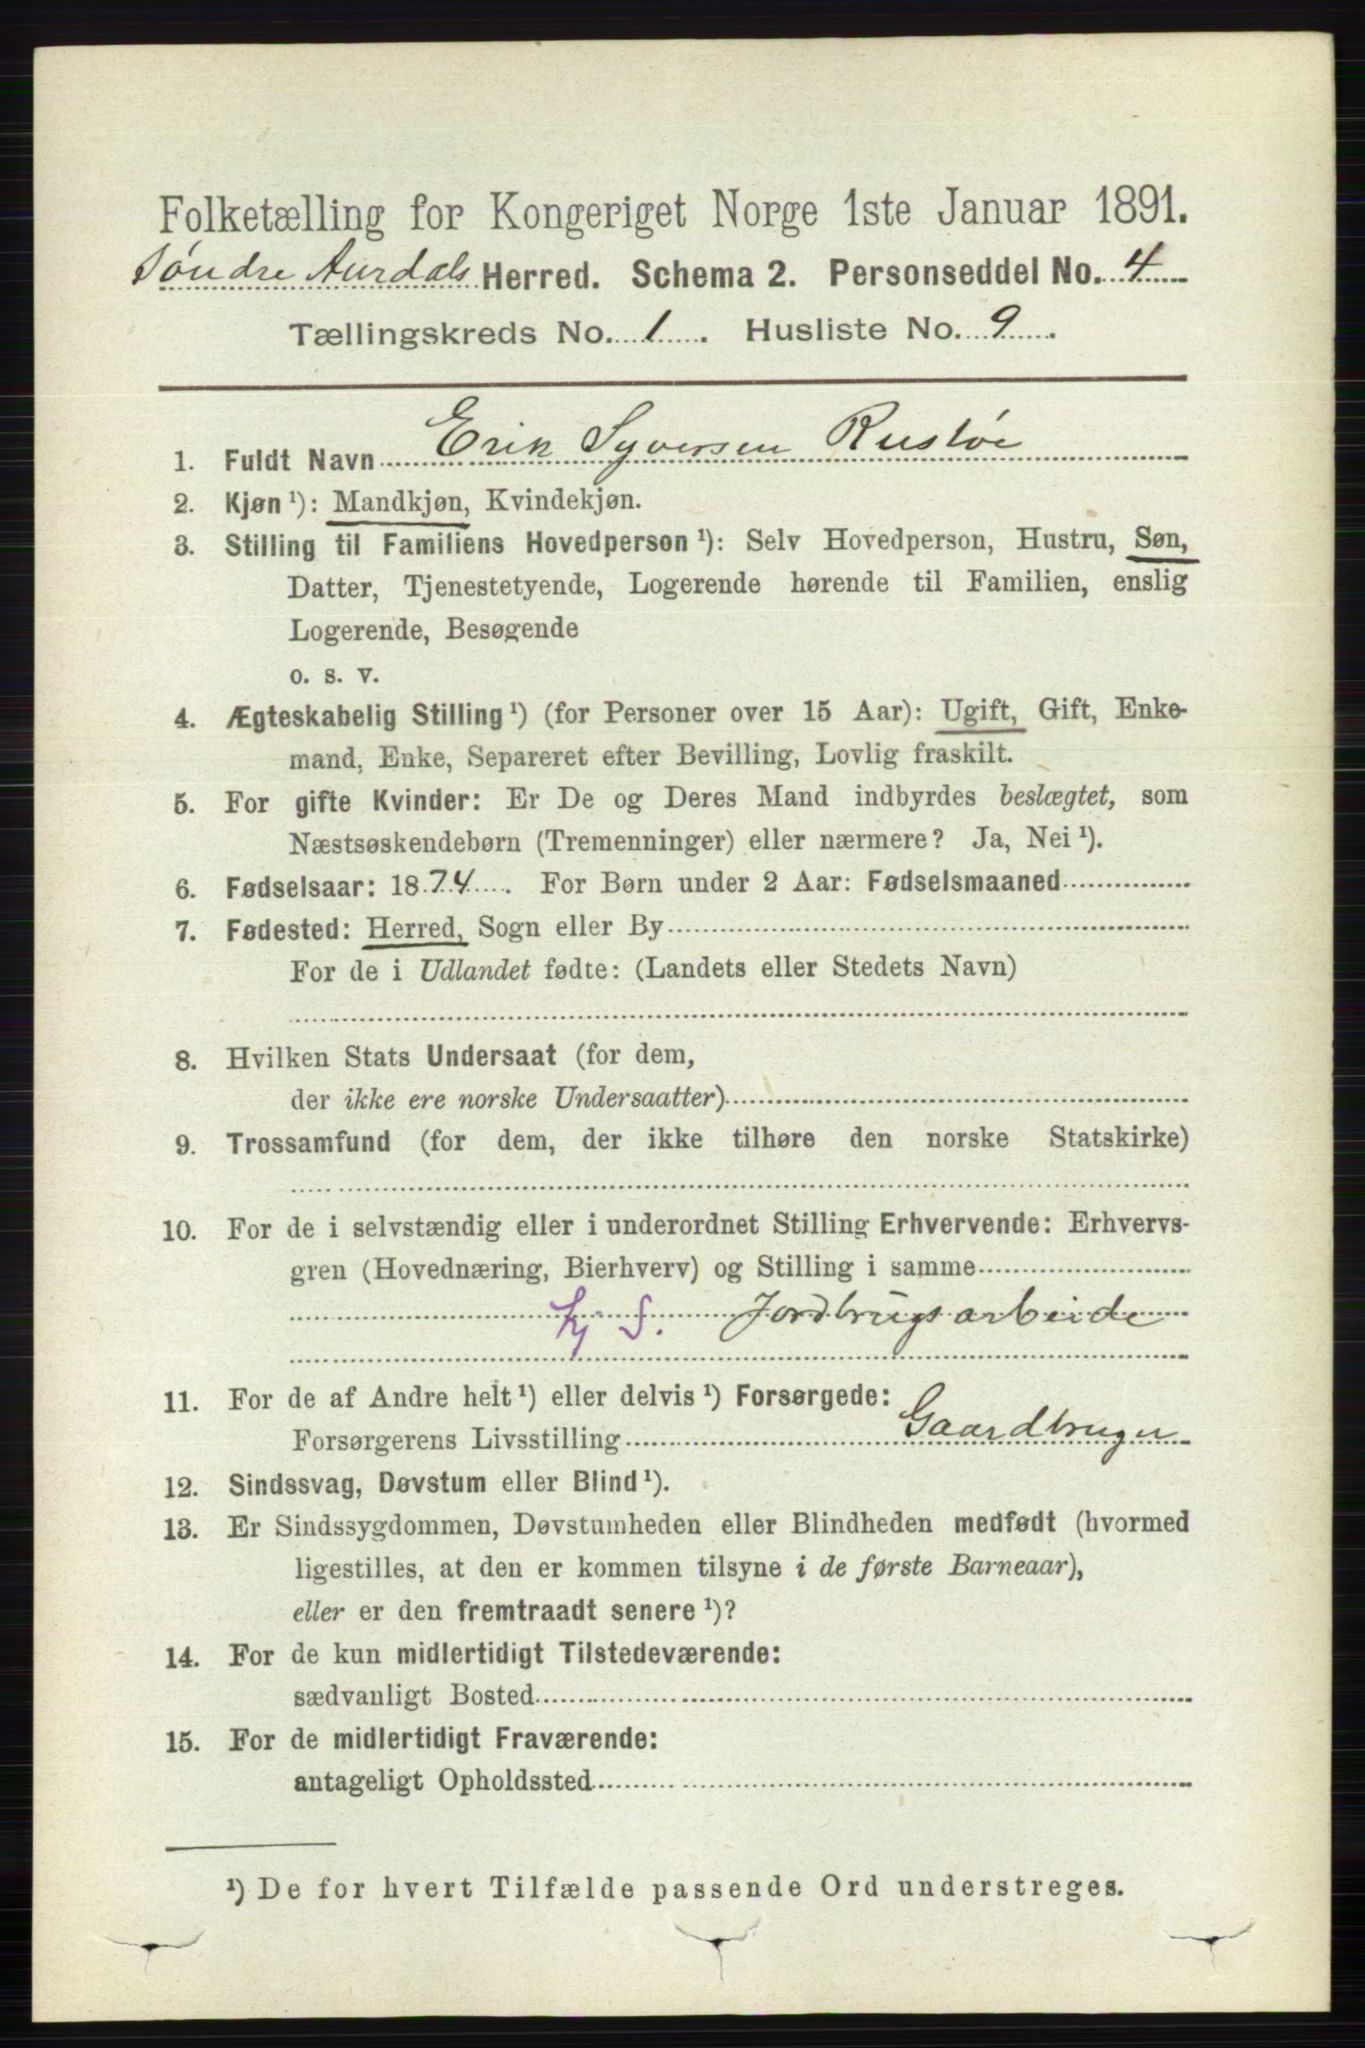 Folketælling for Kongeriget Norge 1ste Januar 1891.
Søndre Aurdals Herred. Schema 2. Personseddel No. 4
Tællingskreds No. 1. Husliste No. 9.
1. Fuldt Navn Erik Syversen Rustøe
2. Kjøn ¹): Mandkjøn, Kvindekjøn.
3. Stilling til Familiens Hovedperson ¹): Selv Hovedperson, Hustru, Søn,
Datter, Tjenestetyende, Logerende hørende til Familien, enslig
Logerende, Besøgende
o. s. v.
4. Ægteskabelig Stilling ¹) (for Personer over 15 Aar): Ugift, Gift, Enke-
mand, Enke, Separeret efter Bevilling, Lovlig fraskilt.
5. For gifte Kvinder: Er De og Deres Mand indbyrdes beslægtet, som
Næstsøskendebørn (Tremenninger) eller nærmere? Ja, Nei ¹).
6. Fødselsaar: 1874. For Børn under 2 Aar: Fødselsmaaned
7. Fødested: Herred, Sogn eller By
For de i Udlandet fødte: (Landets eller Stedets Navn)
8. Hvilken Stats Undersaat (for dem,
der ikke ere norske Undersaatter)
9. Trossamfund (for dem, der ikke tilhøre den norske Statskirke)
10. For de i selvstændig eller i underordnet Stilling Erhvervende: Erhvervs-
gren (Hovednæring, Bierhverv) og Stilling i samme
S. Jordbrugsarbeide
11. For de af Andre helt ¹) eller delvis ¹) Forsørgede:
Forsørgerens Livsstilling Gaardbruger
12. Sindssvag, Døvstum eller Blind ¹).
13. Er Sindssygdommen, Døvstumheden eller Blindheden medfødt (hvormed
ligestilles, at den er kommen tilsyne i de første Barneaar),
eller er den fremtraadt senere ¹)?
14. For de kun midlertidigt Tilstedeværende:
sædvanligt Bosted
15. For de midlertidigt Fraværende:
antageligt Opholdssted
¹) De for hvert Tilfælde passende Ord understreges.